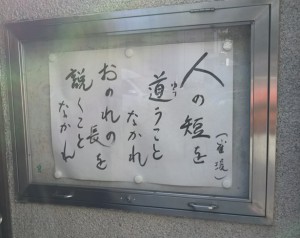 人の短を
道うこと
なかれ
おのれの
長を
説くこと
なかれ